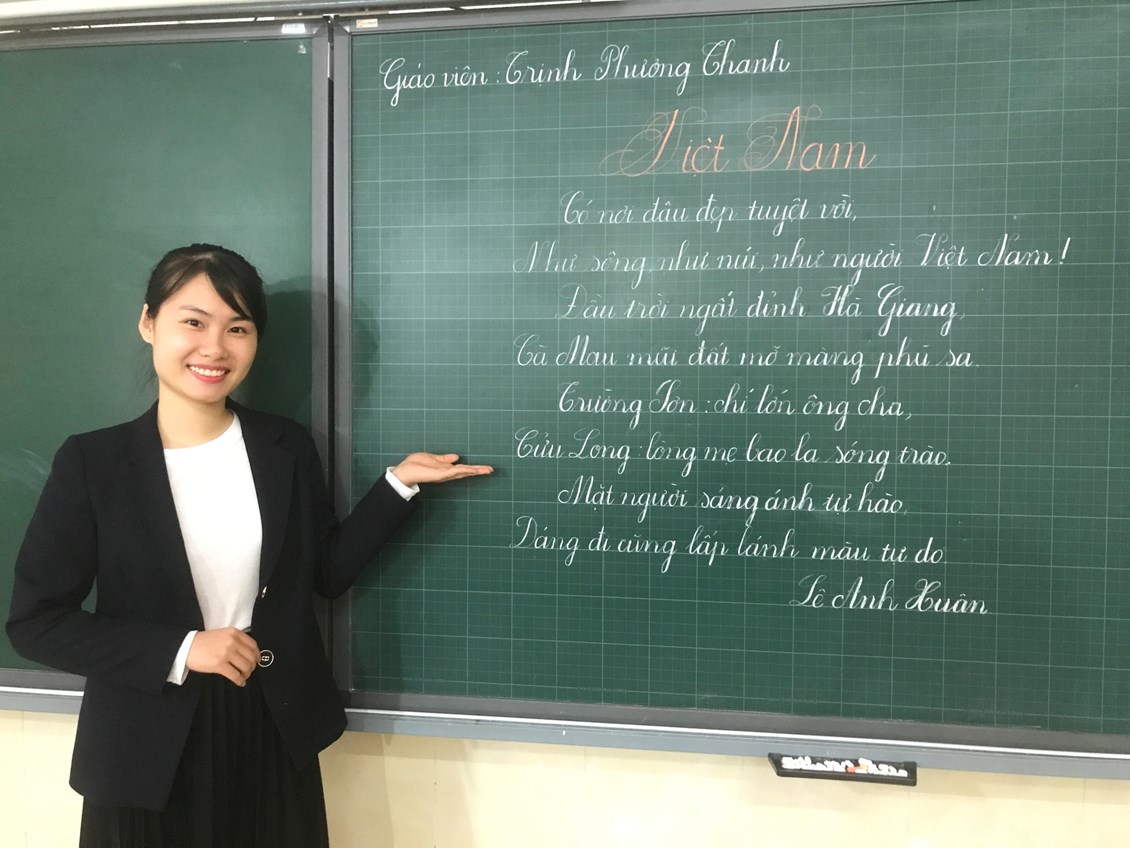 Giáo viên : Trịnh Phương Thanh
Việt Nam
Có nơi đâu đẹp tuyệt vời,
Như sông, như núi, như người Việt Nam !
Đầu trời ngất đỉnh Hà Giang,
Cà Mau mũi đất mỡ màng phù sa.
Trường Sơn : chí lớn ông cha,
Cửu Long : lòng mẹ bao la sóng trào.
Mặt người sáng ánh tự hào,
Dáng đi cũng lấp lánh màu tự do.
Lê Anh Xuân